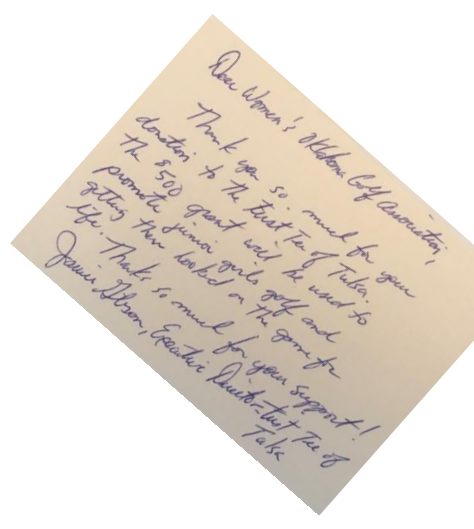 Dear Women's Oklahoma Golf Association,
Thank you so much for your
donation to the First Tee of Tulsa.
The $500 grant will be used to
promote junior girls golf and
getting them hooked on the game for
life. Thanks so much for your support!
Janice Gibson, Executive Director-First Tee of
Tulsa